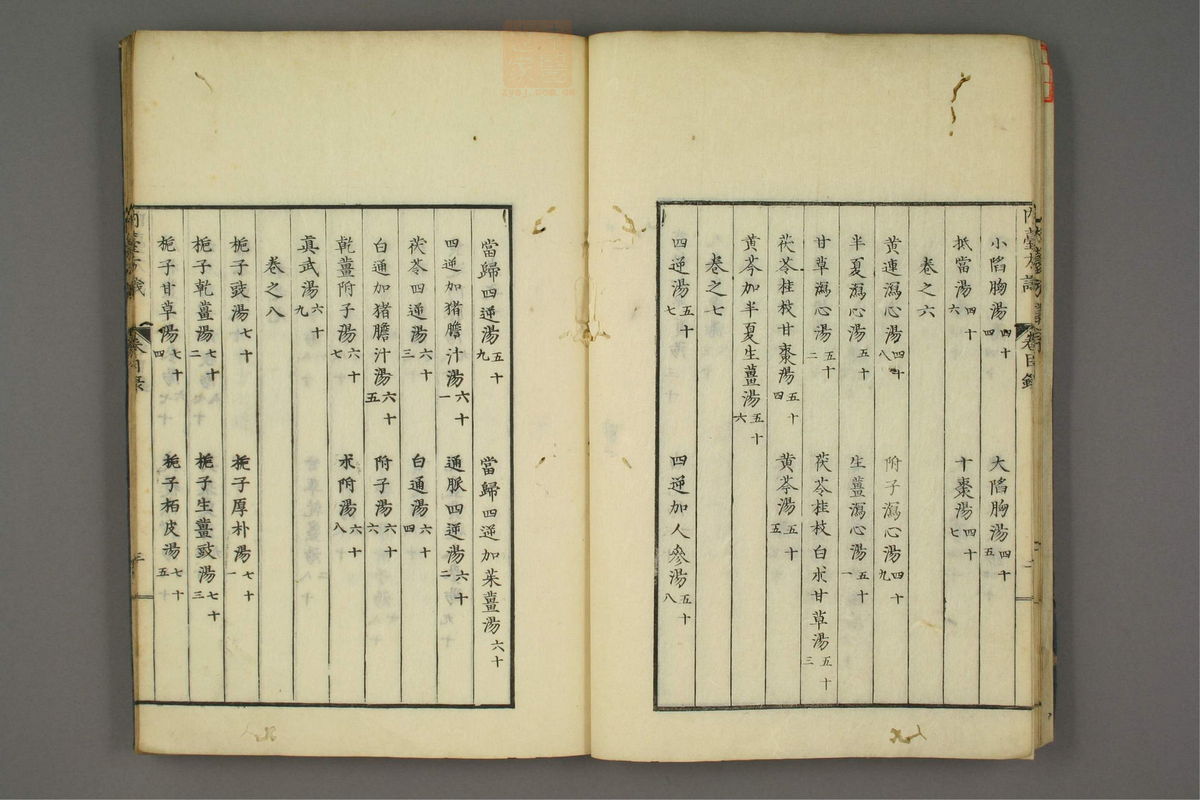 內臺方議 卷目錄
小陷胸湯四十四 大陷胸湯四十五
抵當湯四十六 十棗湯四十七
卷之六
黃連瀉心湯四十八 附子瀉心湯四十九
半夏瀉心湯五十 生薑瀉心湯五十一
甘草瀉心湯五十二 茯苓桂枝白朮甘草湯五十三
茯苓桂枝甘棗湯五十四 黃芩湯五十五
黃芩加半夏生薑湯五十六
卷之七
四逆湯五十七 四逆加人參湯五十八
當歸四逆湯五十九 當歸四逆加茱薑湯六十
四逆加猪膽汁湯六十一 通脈四逆湯六十二
茯苓四逆湯六十三 白通湯六十四
白通加猪膽汁湯六十五 附子湯六十六
乾薑附子湯六十七 朮附湯六十八
眞武湯六十九
卷之八
栀子豉湯七十 栀子厚朴湯七十一
栀子乾薑湯七十二 栀子生薑豉湯七十三
栀子甘草湯七十四 栀子柏皮湯七十五
內臺方議 卷目錄 三